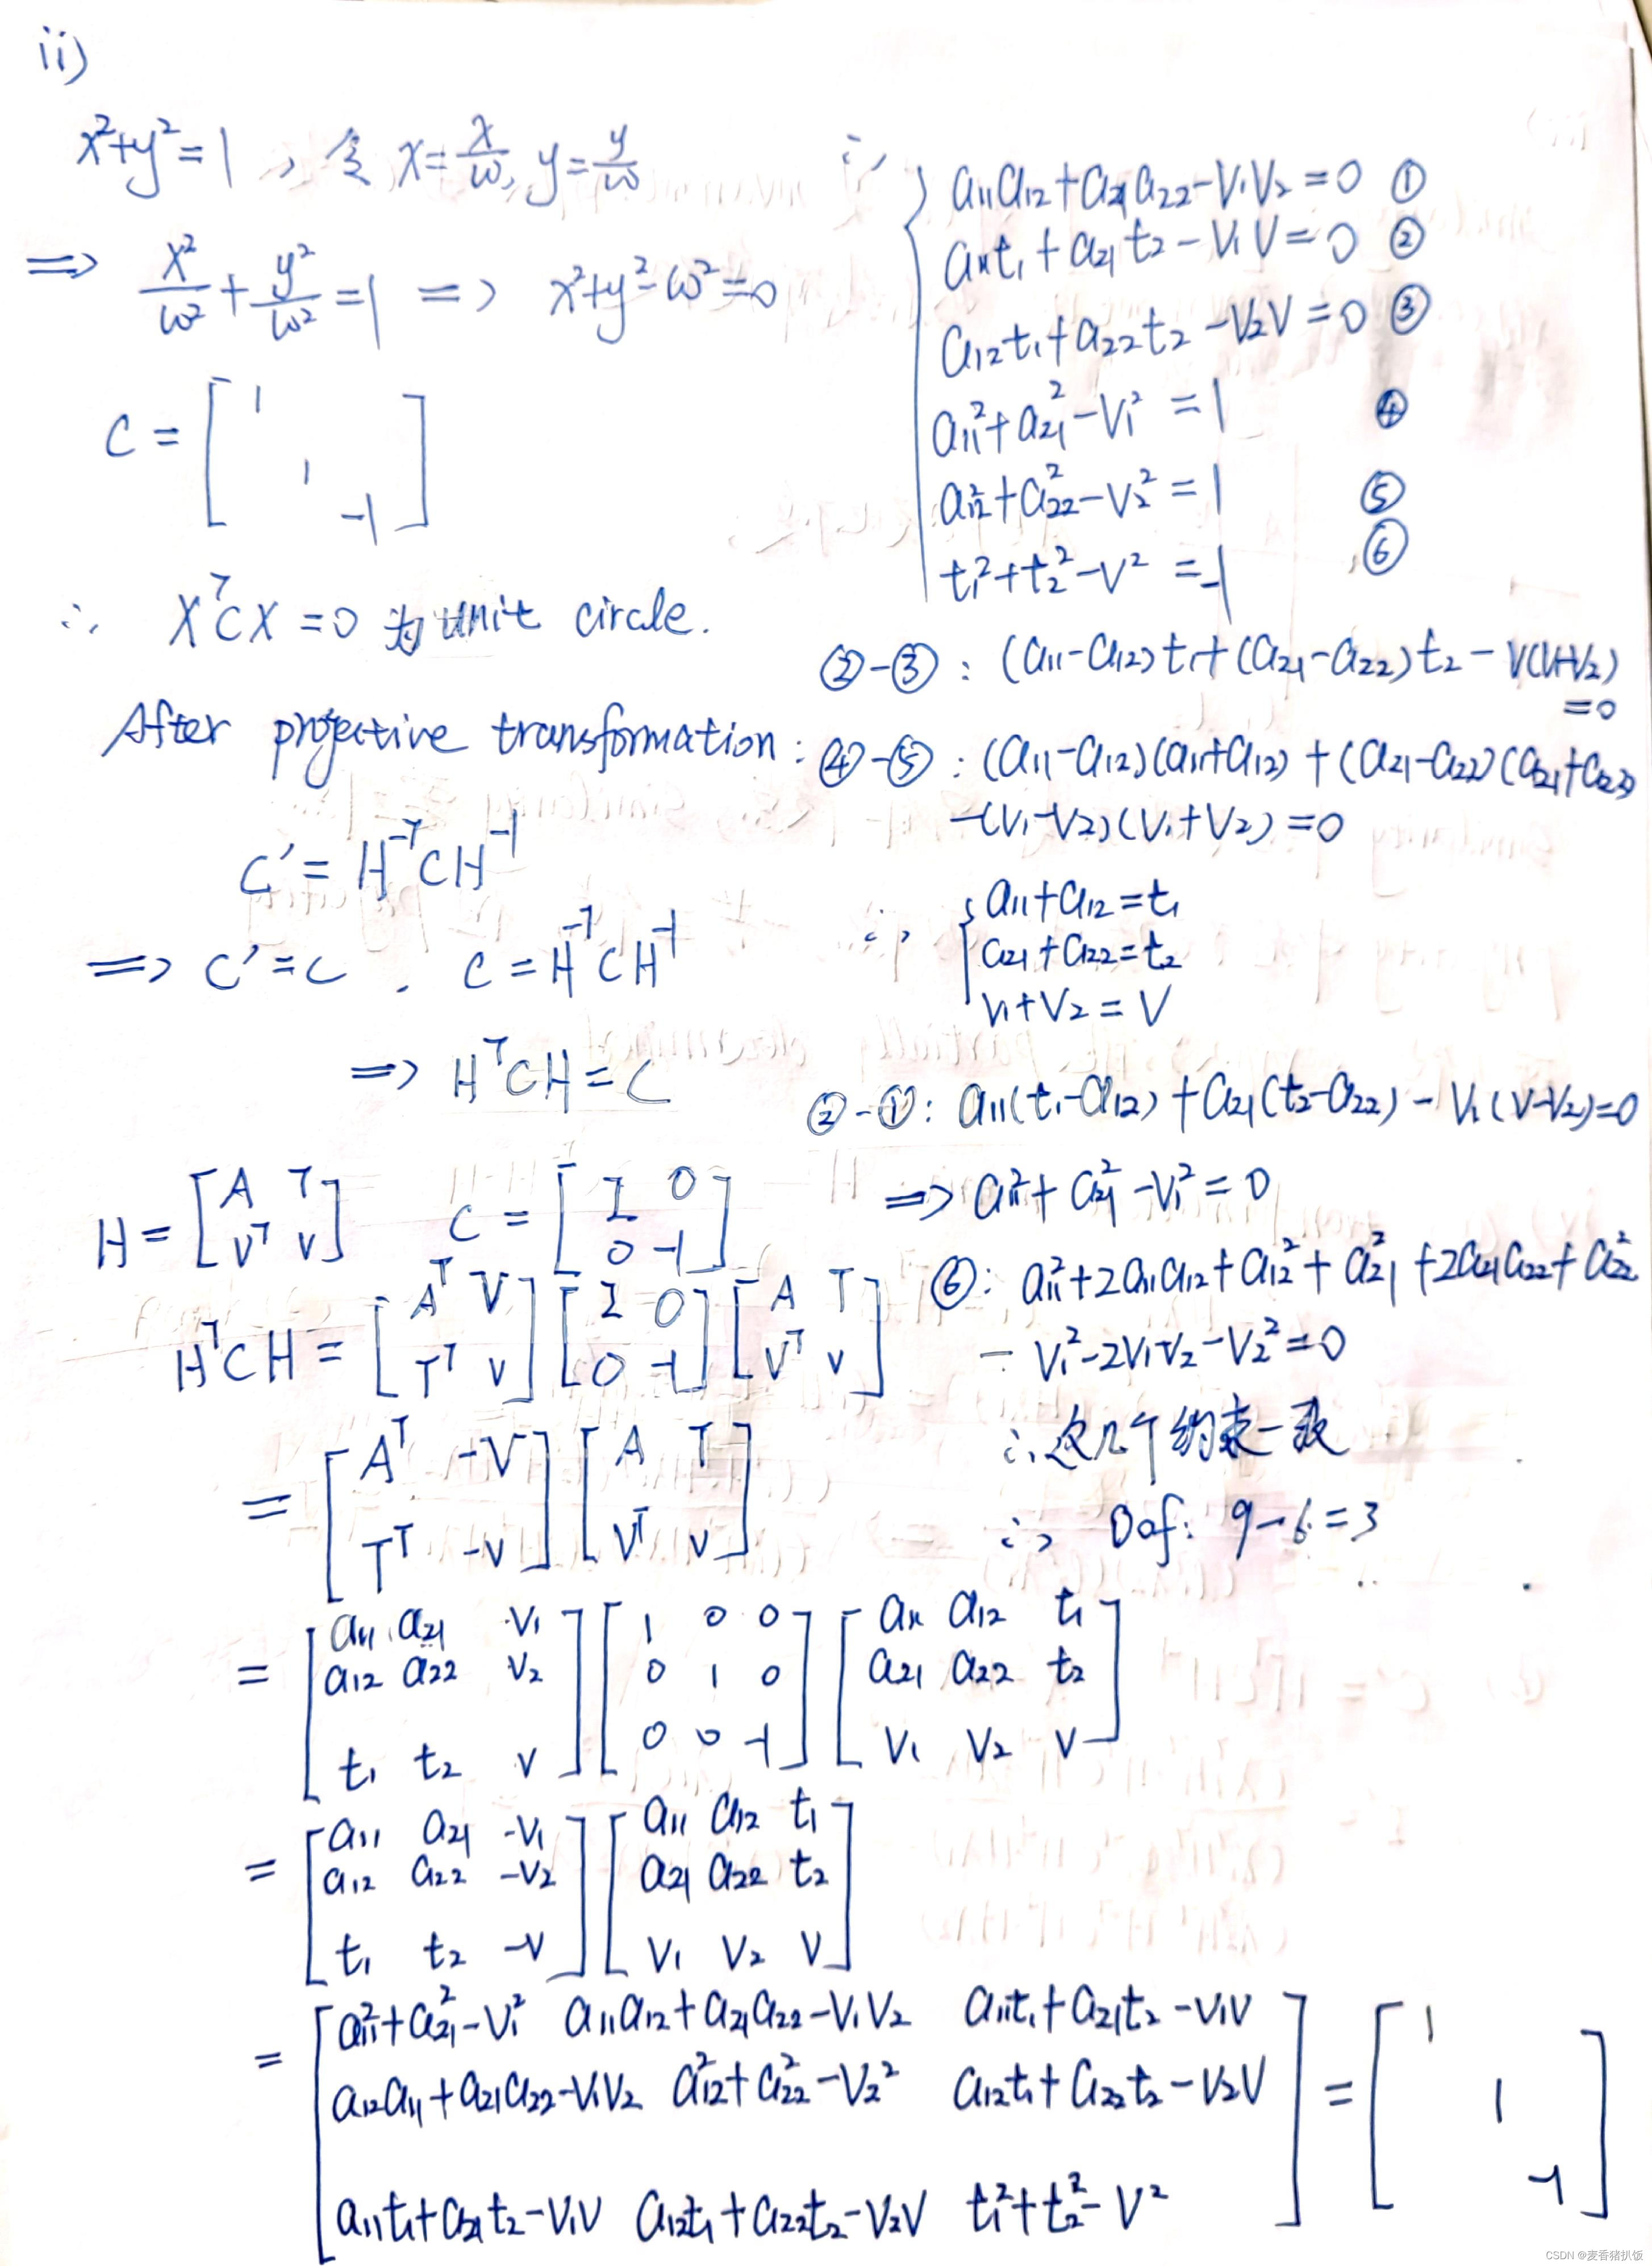 ii)
x²+y²=1, 令 x=x/ω, y=y/ω
⇒ x²/ω² + y²/ω² = 1 ⇒ x²+y²-ω²=0
C = [ 1
1
-1 ]
∴ XᵀCX=0 为 unit circle.
After projective transformation:
C' = H⁻ᵀCH⁻¹
⇒ C'=C . C=H⁻ᵀCH⁻¹
⇒ HᵀCH=C
H = [ A T
Vᵀ v ] C = [ I 0
0 -1 ]
HᵀCH = [ Aᵀ V
Tᵀ v ] [ I 0
0 -1 ] [ A T
Vᵀ v ]
= [ Aᵀ -V
Tᵀ -v ] [ A T
Vᵀ v ]
= [ a₁₁ a₂₁ v₁
a₁₂ a₂₂ v₂
t₁ t₂ v ] [ 1 0 0
0 1 0
0 0 -1 ] [ a₁₁ a₁₂ t₁
a₂₁ a₂₂ t₂
v₁ v₂ v ]
= [ a₁₁ a₂₁ -v₁
a₁₂ a₂₂ -v₂
t₁ t₂ -v ] [ a₁₁ a₁₂ t₁
a₂₁ a₂₂ t₂
v₁ v₂ v ]
= [ a₁₁²+a₂₁²-v₁² a₁₁a₁₂+a₂₁a₂₂-v₁v₂ a₁₁t₁+a₂₁t₂-v₁v
a₁₂a₁₁+a₂₁a₂₂-v₁v₂ a₁₂²+a₂₂²-v₂² a₁₂t₁+a₂₂t₂-v₂v
a₁₁t₁+a₂₁t₂-v₁v a₁₂t₁+a₂₂t₂-v₂v t₁²+t₂²-v² ] = [ 1
1
-1 ]
∴ { a₁₁a₁₂+a₂₁a₂₂-v₁v₂=0 ①
a₁₁t₁+a₂₁t₂-v₁v=0 ②
a₁₂t₁+a₂₂t₂-v₂v=0 ③
a₁₁²+a₂₁²-v₁²=1 ④
a₁₂²+a₂₂²-v₂²=1 ⑤
t₁²+t₂²-v²=-1 ⑥
②-③: (a₁₁-a₁₂)t₁+(a₂₁-a₂₂)t₂-v(v₁+v₂)
=0
④-⑤: (a₁₁-a₁₂)(a₁₁+a₁₂)+(a₂₁-a₂₂)(a₂₁+a₂₂)
-(v₁-v₂)(v₁+v₂)=0
∴ { a₁₁+a₁₂=t₁
a₂₁+a₂₂=t₂
v₁+v₂=v
②-①: a₁₁(t₁-a₁₂)+a₂₁(t₂-a₂₂)-v₁(v-v₂)=0
⇒ a₁₁²+a₂₁²-v₁²=0
⑥: a₁₁²+2a₁₁a₁₂+a₁₂²+a₂₁²+2a₂₁a₂₂+a₂₂²
-v₁²-2v₁v₂-v₂²=0
∴ 这几个约束一致
∴ Dof: 9-6=3
CSDN @麦香猪扒饭